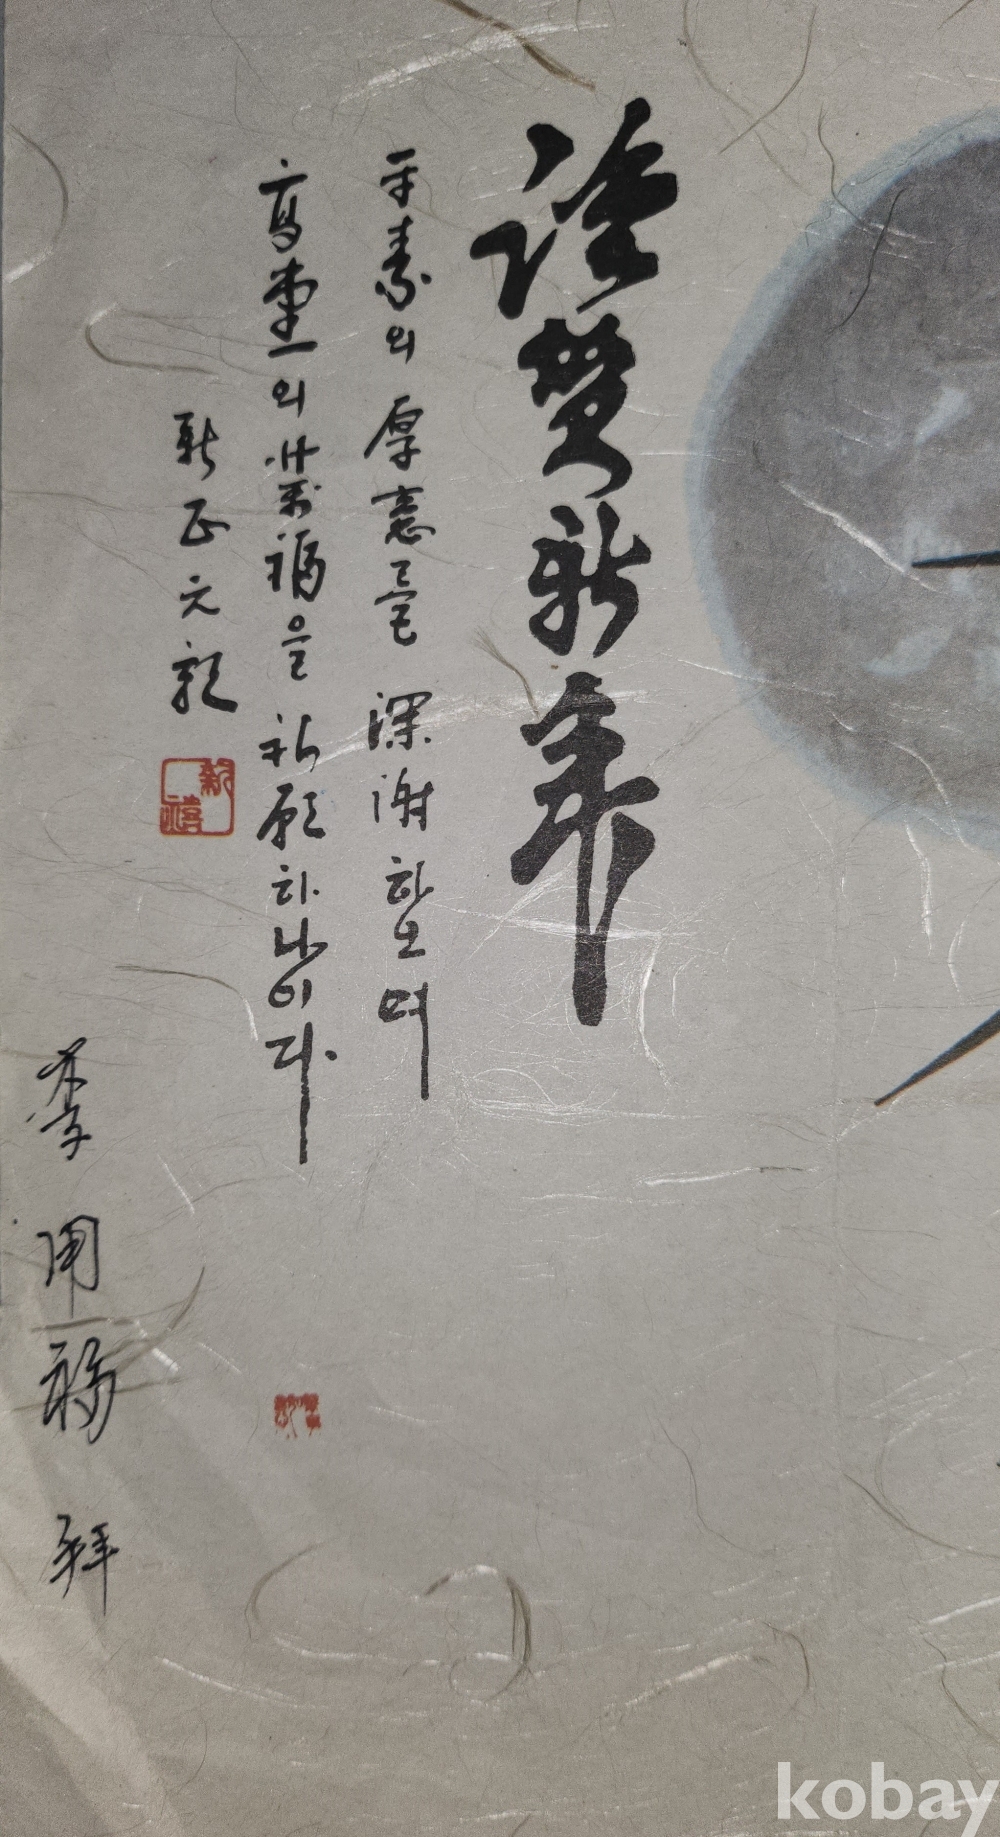 謹賀新年
平素의 厚意를 深謝하오며
高堂의 萬福을 祈願하나이다
新正元旦
新禧
李用福 拜
kobay